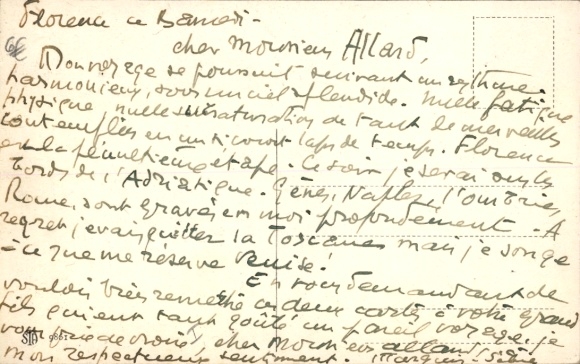 Florence ce Samedi -
cher Monsieur Allard,
Mon voyage se poursuit suivant un rythme
harmonieux, sous un ciel splendide. Nulle fatigue
physique, nulle sursaturation de tant de merveilles
contemplées en un si court laps de temps. Florence
est la pénultième étape. Ce soir je serai sur les
bords de l'Adriatique. Gênes, Naples, l'Ombrie,
Rome, sont gravés en moi profondément. A
regret je vais quitter la Toscane mais je songe
à ce que me réserve Venise!
En vous demandant de
vouloir bien remettre ces deux cartes à votre grand
fils qui eut tant goûté un pareil voyage. je
vous prie de croire, cher Monsieur Allard, à
mon respectueux sentiment.
66
STA 9661